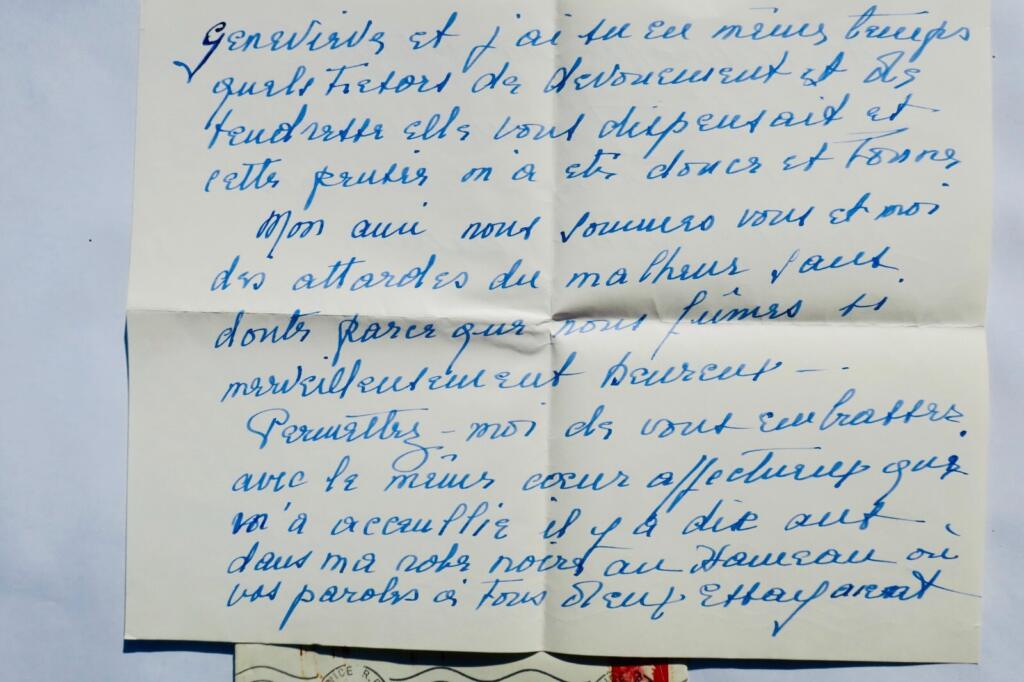 Geneviève et j'ai su en même temps
quels trésors de dévouement et de
tendresse elle vous dispensait et
cette pensée m'a été douce et bonne
Mon ami nous sommes vous et moi
des attardés du malheur sans
doute parce que nous fûmes si
merveilleusement heureux - -
Permettez-moi de vous embrasser
avec le même cœur affectueux qui
m'a accueillie il y a dix ans
dans ma robe noire au Hameau où
vos paroles à tous deux essayaient
NICE R.